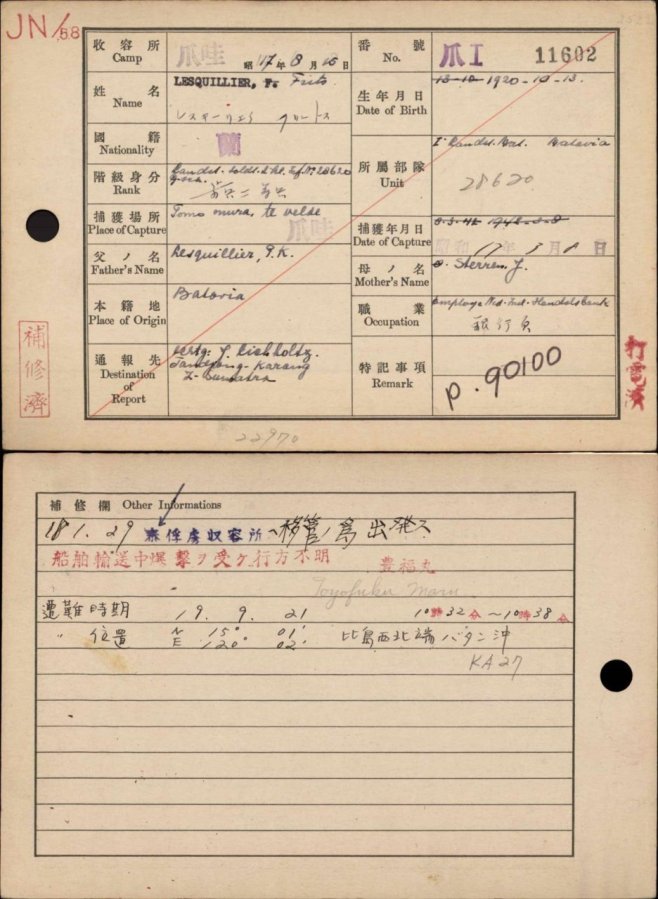 JN/58
收容所 Camp 爪哇 昭 17年 8月 15日
番號 No. 爪I 11602
姓名 Name LESQUILLIER, F. Frits
生年月日 Date of Birth 13-10-1920-10-13.
國籍 Nationality 蘭
階級身分 Rank Landst. sold.
所屬部隊 Unit Iᵉ Landst. Bat. Batavia
28620
捕獲場所 Place of Capture te velde
爪哇
捕獲年月日 Date of Capture 8-3-42 1942-3-8
昭和 17年 3月 8日
父ノ名 Father's Name Lesquillier, J.K.
母ノ名 Mother's Name Sterren, J.
本籍地 Place of Origin Batavia
職業 Occupation Employe Ned. Ind. Handelsbank
銀行員
通報先 Destination of Report J. Eichholtz.
Tandjong-Karang
Z-Sumatra
特記事項 Remark
P. 90100
補修濟
打電済
22970
補修欄 Other Informations
18 1. 29 泰俘虜収容所ヘ移管ノ為出発ス
船舶輸送中爆撃ヲ受ケ行方不明 豊福丸
Toyofuku Maru
遭難時期 19. 9. 21 10時32分~10時38分
〃 位置 N 15° 01'
E 120° 02' 比島西北端バタン沖
KA27